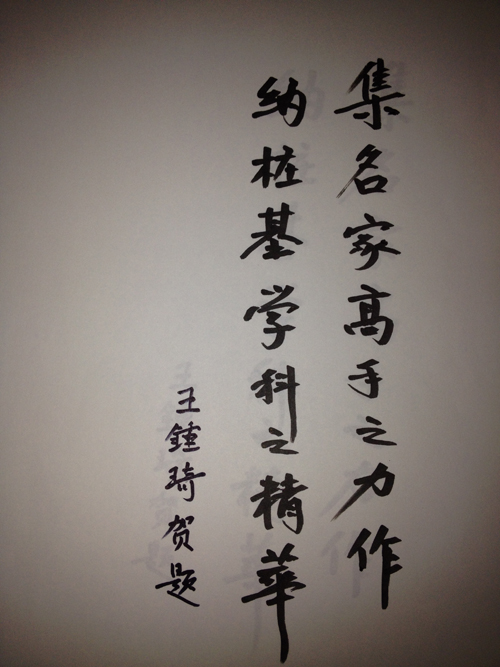 集名家高手之力作
纳桩基学科之精華
王鍾琦贺题